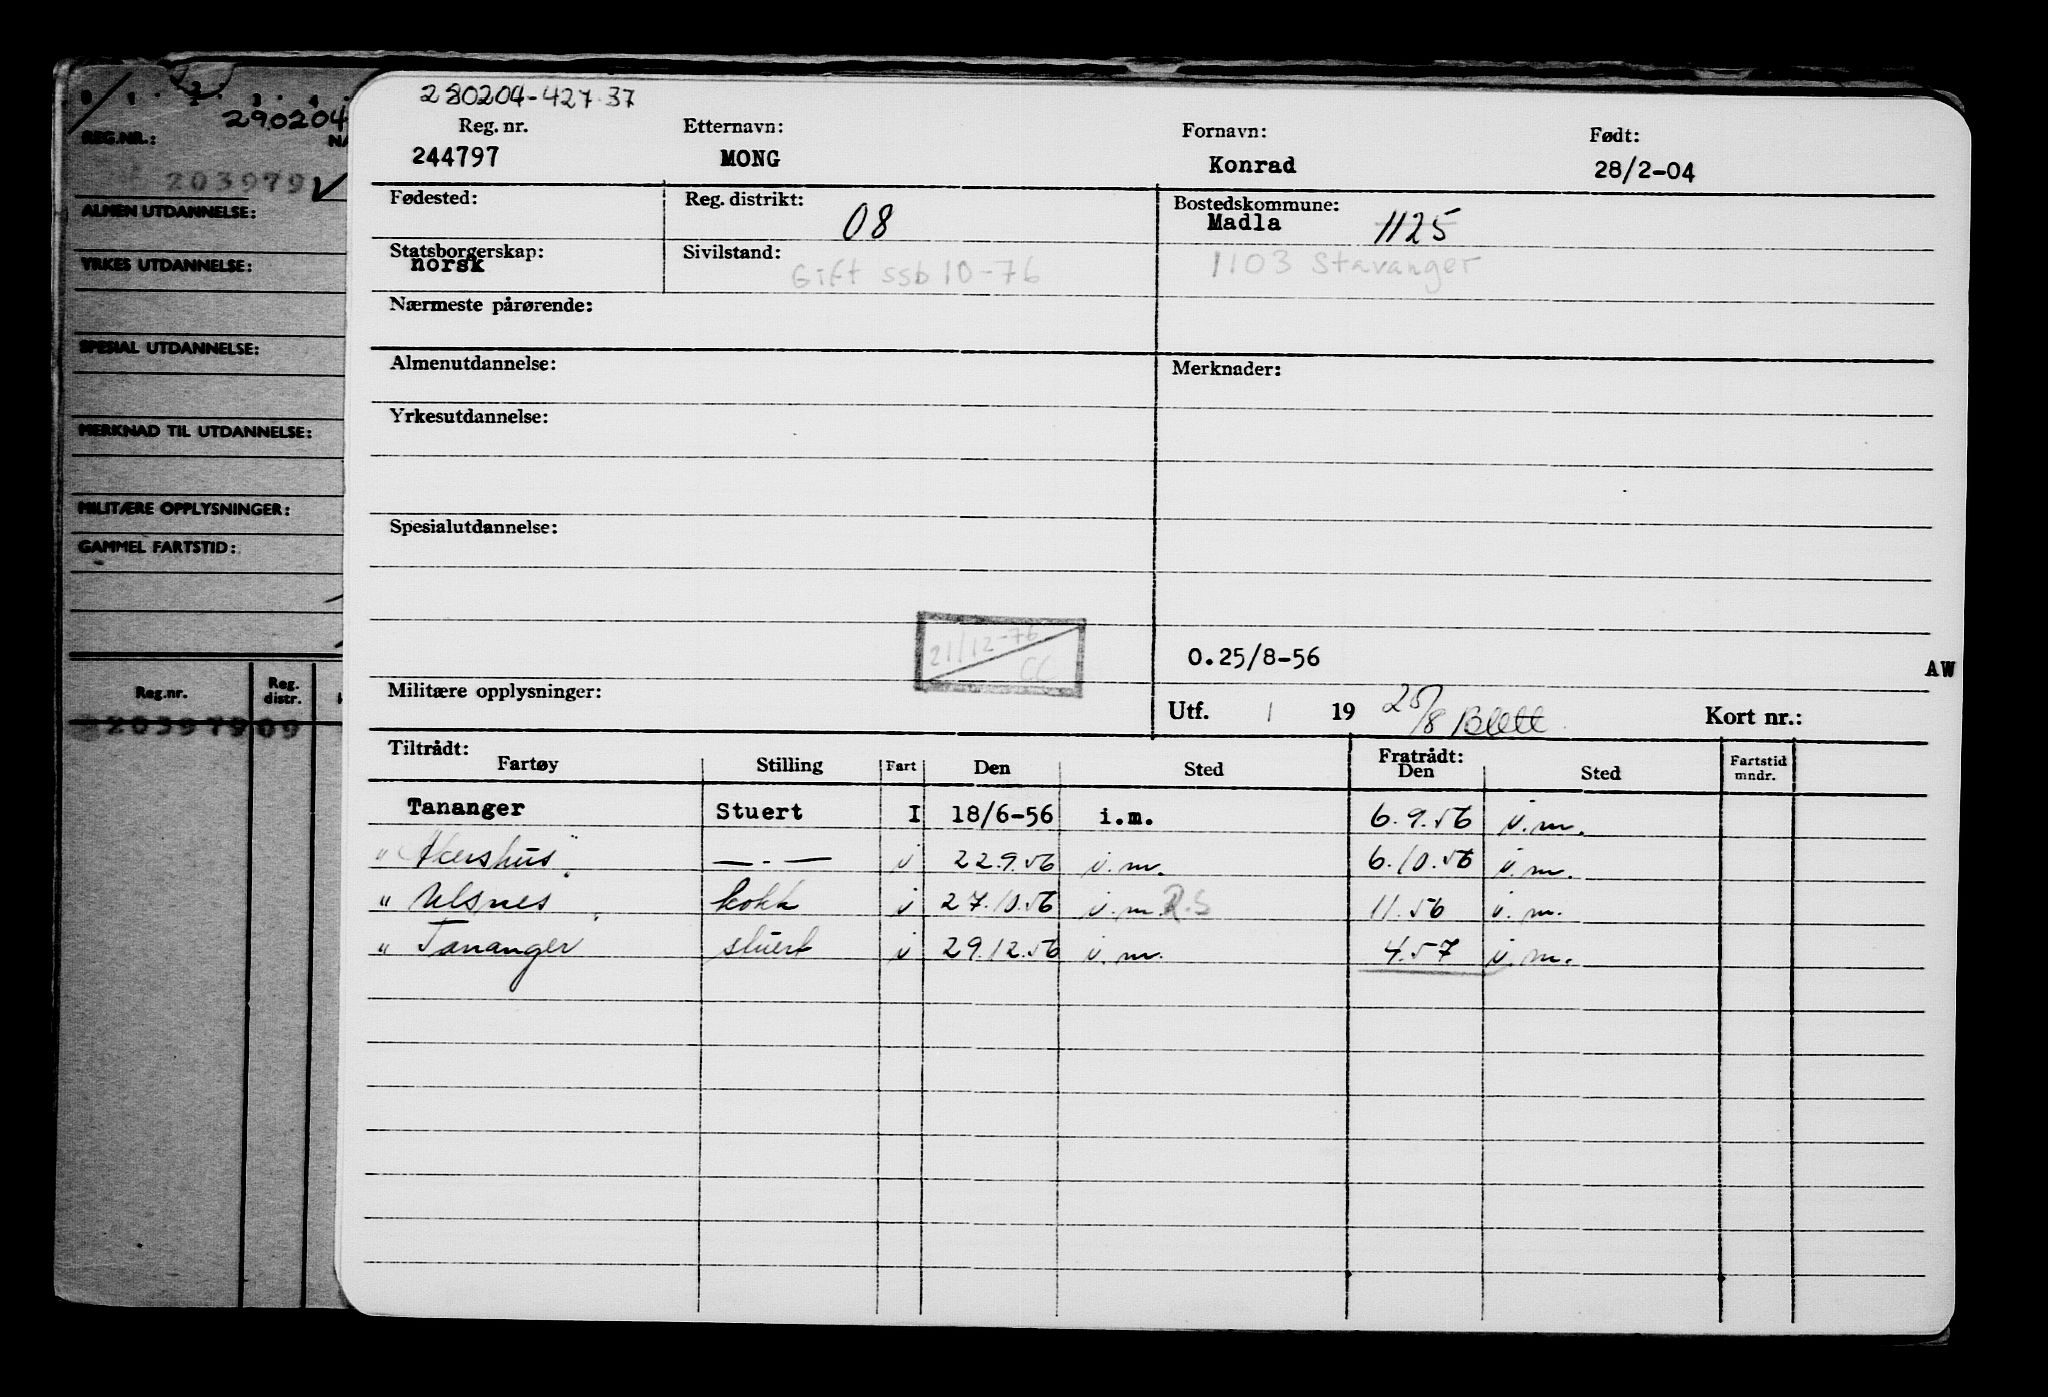 290204
REG.NR.:
203979 ✓
ALMEN UTDANNELSE:
YRKES UTDANNELSE:
SPESIAL UTDANNELSE:
MERKNAD TIL UTDANNELSE:
MILITÆRE OPPLYSNINGER:
GAMMEL FARTSTID:
Reg.nr. Reg. distr.
203979 09
280204-427.37
Reg. nr. Etternavn: Fornavn: Født:
244797 MONG Konrad 28/2-04
Fødested: Reg. distrikt: 08 Bostedskommune:
Madla 1125
Statsborgerskap: Sivilstand:
norsk Gift ssb 10-76 1103 Stavanger
Nærmeste pårørende:
Almenutdannelse: Merknader:
Yrkesutdannelse:
Spesialutdannelse:
21/12-76
CC
0.25/8-56 AW
Militære opplysninger: Utf. 1 19 25/8 Blett Kort nr.:
Tiltrådt: Fratrådt: Fartstid
Fartøy Stilling Fart Den Sted Den Sted mndr.
Tananger Stuert I 18/6-56 i.m. 6.9.56 i.m.
"Akershus" —.— i 22.9.56 i.m. 6.10.56 i.m.
" Ulsnes kokk i 27.10.56 i.m. R.S 11.56 i.m.
" Tananger stuert i 29.12.56 i.m. 4.57 i.m.